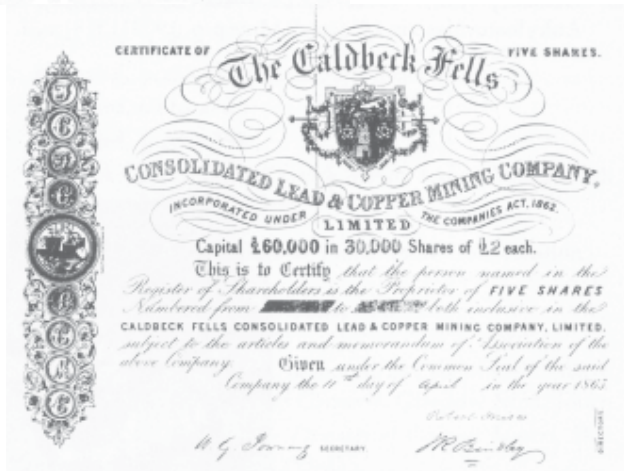 CERTIFICATE OF FIVE SHARES.
The Caldbeck Fells
CONSOLIDATED LEAD & COPPER MINING COMPANY,
LIMITED
INCORPORATED UNDER THE COMPANIES ACT, 1862.
Capital £60,000 in 30,000 Shares of £2 each.
This is to Certify that the person named in the
Register of Shareholders is the Proprietor of FIVE SHARES
Numbered from to both inclusive in the
CALDBECK FELLS CONSOLIDATED LEAD & COPPER MINING COMPANY, LIMITED.
subject to the articles and memorandum of Association of the
above Company. Given under the Common Seal of the said
Company the 11th day of April in the year 1865
W. G. SECRETARY.
DIRECTORS